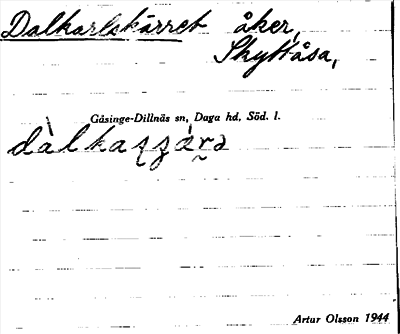 Dalkarlskärret åker,
Skyttåsa,
Gåsinge-Dillnäs sn, Daga hd, Söd. l.
Artur Olsson 1944